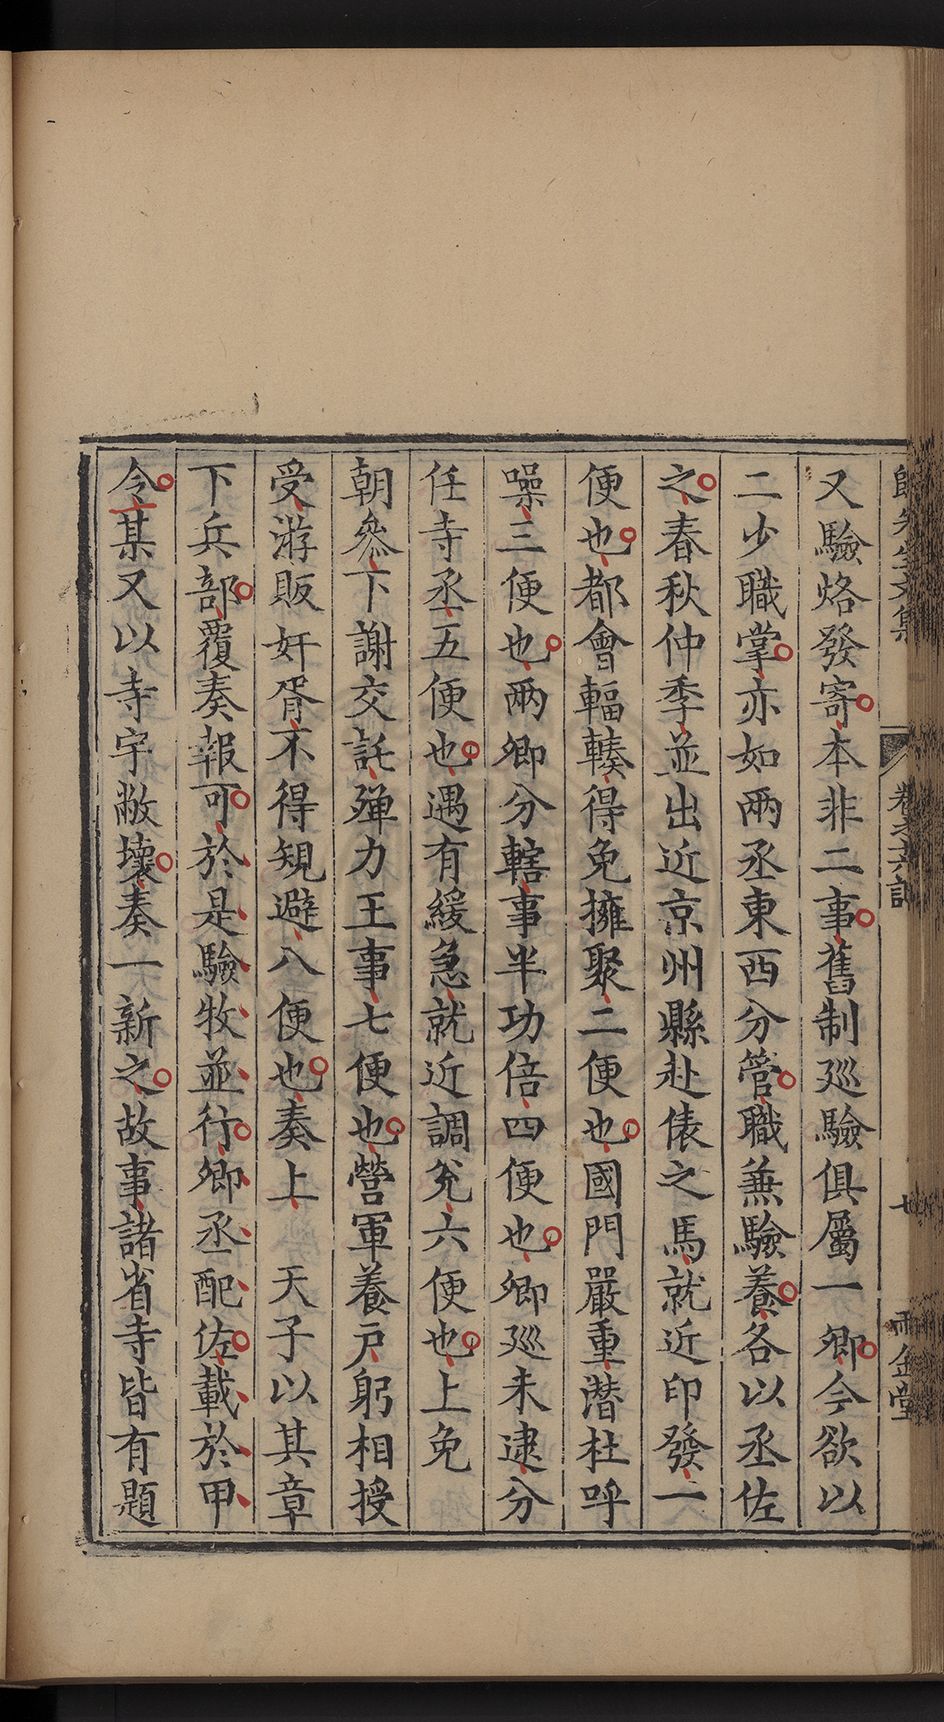 又驗烙發寄本非二事舊制巡驗俱屬一卿今欲以
二少職掌亦如兩丞東西分管職兼驗養各以丞佐
之春秋仲季並出近京州縣赴俵之馬就近印發一
便也都會輻輳得免擁聚二便也國門嚴重潛杜呼
噪三便也兩卿分轄事半功倍四便也卿巡未逮分
任寺丞五便也遇有緩急就近調兌六便也上免
朝參下謝交託殫力王事七便也營軍養戶躬相授
受游販奸胥不得規避八便也奏上　天子以其章
下兵部覆奏報可於是驗牧並行卿丞配佐載於甲
令某又以寺宇敝壞奏一新之故事諸省寺皆有題
卷之六記